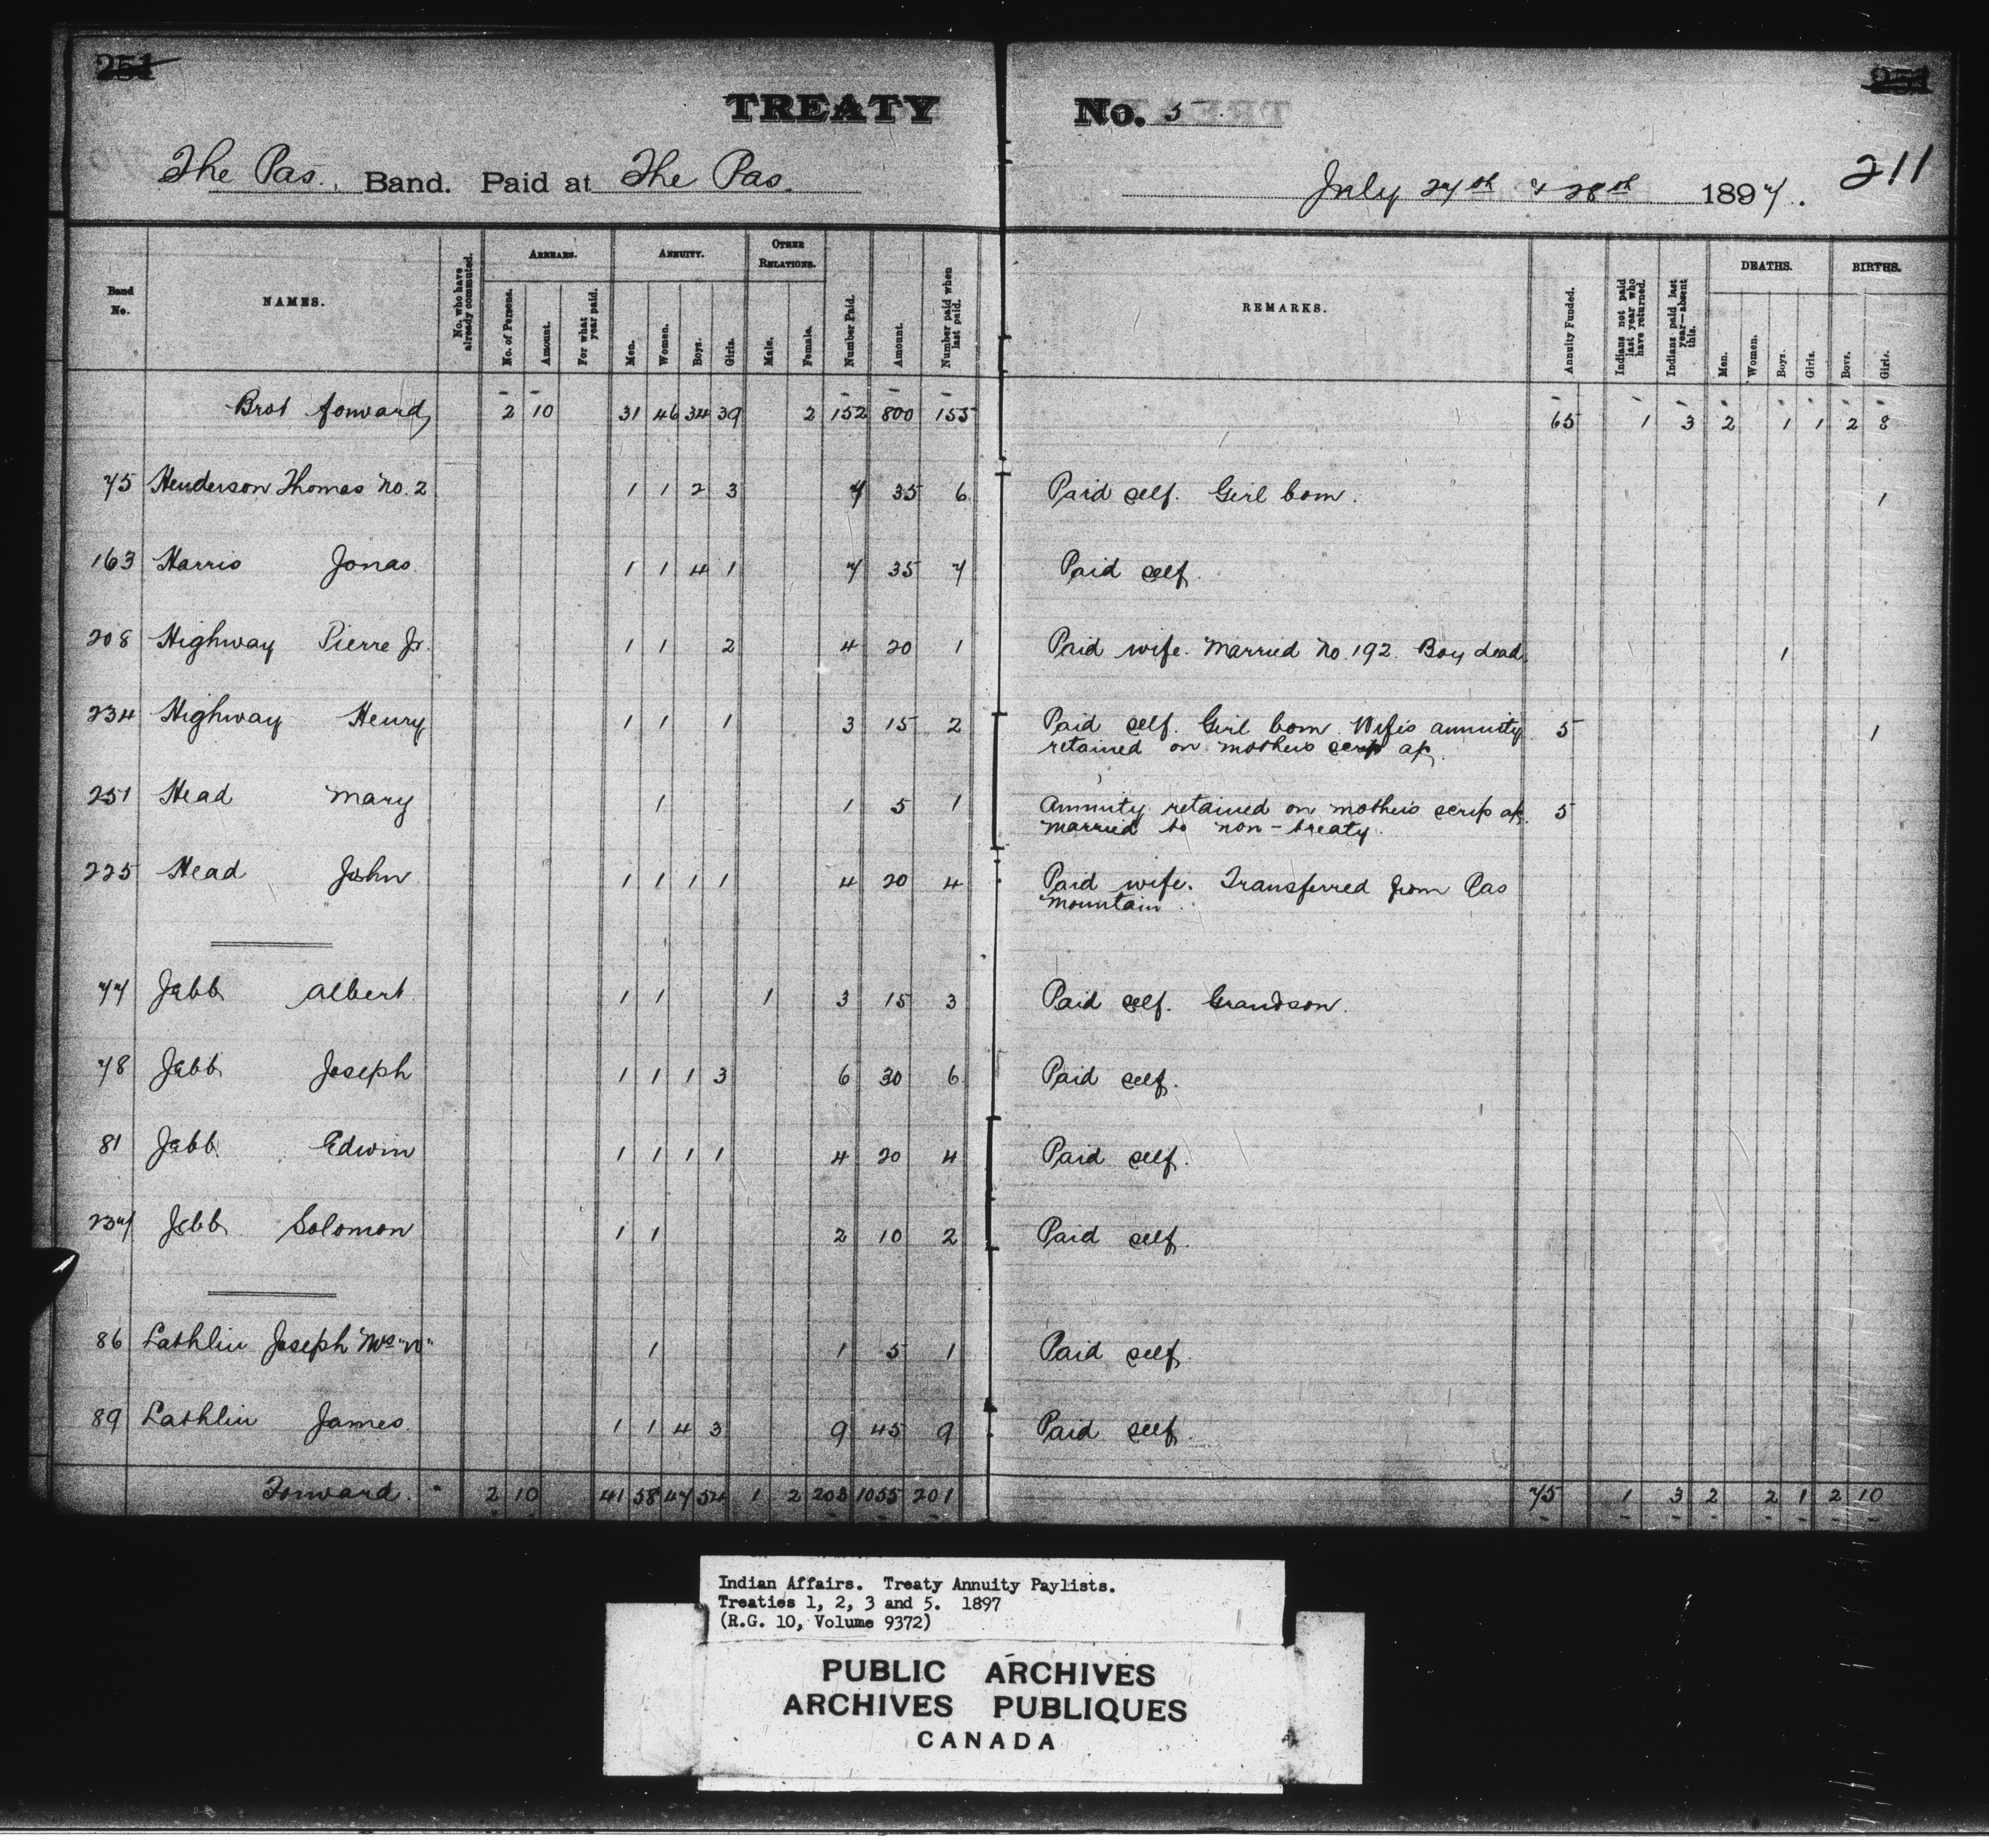 251
251
TREATY No. 5
211
The Pas. Band. Paid at The Pas. July 27th & 28th 1897.
Band No. NAMES. No. who have already commuted. ARREARS. No. of Persons. Amount. For what year paid. ANNUITY. Men. Women. Boys. Girls. OTHER RELATIONS. Male. Female. Number Paid. Amount. Number paid when last paid. REMARKS. Annuity Funded. Indians not paid last year who have returned. Indians paid last year—absent this. DEATHS. Men. Women. Boys. Girls. BIRTHS. Boys. Girls.
Brot forward 2 10 31 46 34 39 2 152 800 155 65 1 3 2 1 1 2 8
75 Henderson Thomas No. 2 1 1 2 3 7 35 6 Paid self. Girl born. 1
163 Harris Jonas. 1 1 4 1 7 35 7 Paid self.
208 Highway Pierre Jr. 1 1 2 4 20 1 Paid wife. Married No. 192. Boy dead. 1
234 Highway Henry 1 1 1 3 15 2 Paid self. Girl born. Wife's annuity 5 1
retained on mothers scrip a/c.
251 Head Mary 1 1 5 1 Annuity retained on mothers scrip a/c. 5
married to non-treaty.
225 Head John 1 1 1 1 4 20 4 Paid wife. Transferred from Pas
mountain.
77 Jebb Albert 1 1 1 3 15 3 Paid self. Grandson.
78 Jebb Joseph 1 1 1 3 6 30 6 Paid self.
81 Jebb Edwin 1 1 1 1 4 20 4 Paid self.
237 Jebb Solomon 1 1 2 10 2 Paid self.
86 Lathlin Joseph Mrs "W" 1 1 5 1 Paid self.
89 Lathlin James. 1 1 4 3 9 45 9 Paid self.
Forward. 2 10 41 58 47 54 1 2 203 1055 201 75 1 3 2 2 1 2 10
Indian Affairs. Treaty Annuity Paylists.
Treaties 1, 2, 3 and 5. 1897
(R.G. 10, Volume 9372)
PUBLIC ARCHIVES
ARCHIVES PUBLIQUES
CANADA